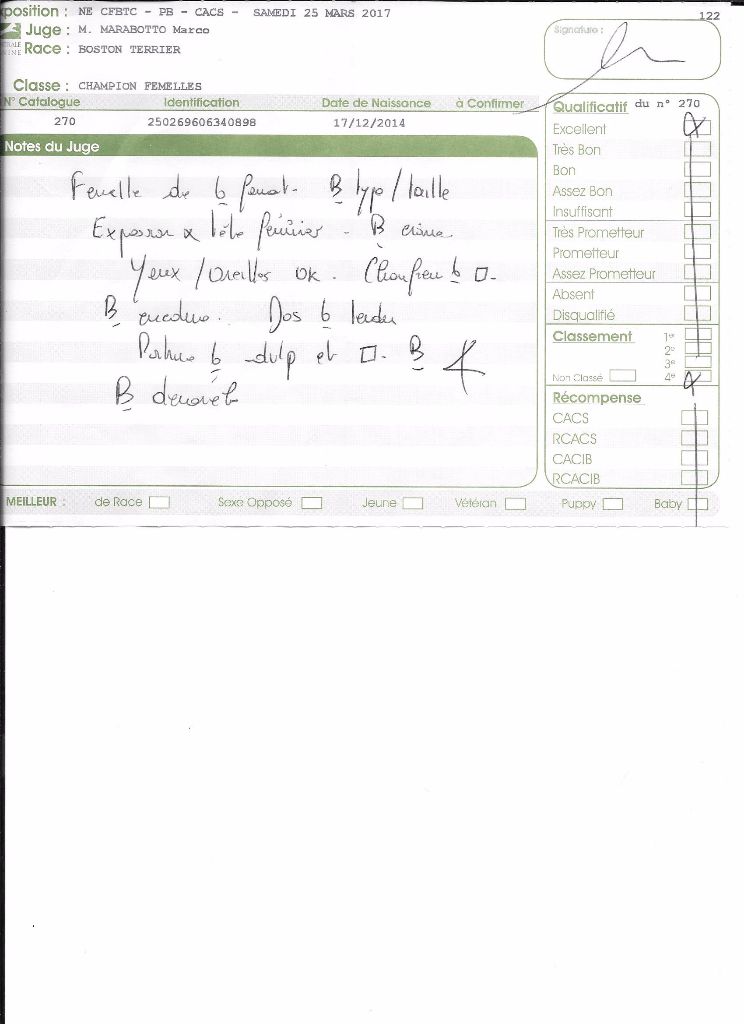 position : NE CFBTC - PB - CACS - SAMEDI 25 MARS 2017
122
Juge : M. MARABOTTO Marco
Signature :
Race : BOSTON TERRIER
Classe : CHAMPION FEMELLES
N° Catalogue Identification Date de Naissance à Confirmer
270 250269606340898 17/12/2014
Qualificatif du n° 270
Excellent X
Très Bon
Bon
Assez Bon
Insuffisant
Très Prometteur
Prometteur
Assez Prometteur
Absent
Disqualifié
Classement 1er
2e
3e
Non Classé 4e X
Récompense
CACS
RCACS
CACIB
RCACIB
Notes du Juge
Femelle de b format. B type/taille
Expression tête - B crâne.
Yeux / Oreilles ok. Chanfrein b □.
B encolure. Dos b tendu
Poitrine b dvlp et □. B
B
MEILLEUR : de Race Sexe Opposé Jeune Vétéran Puppy Baby